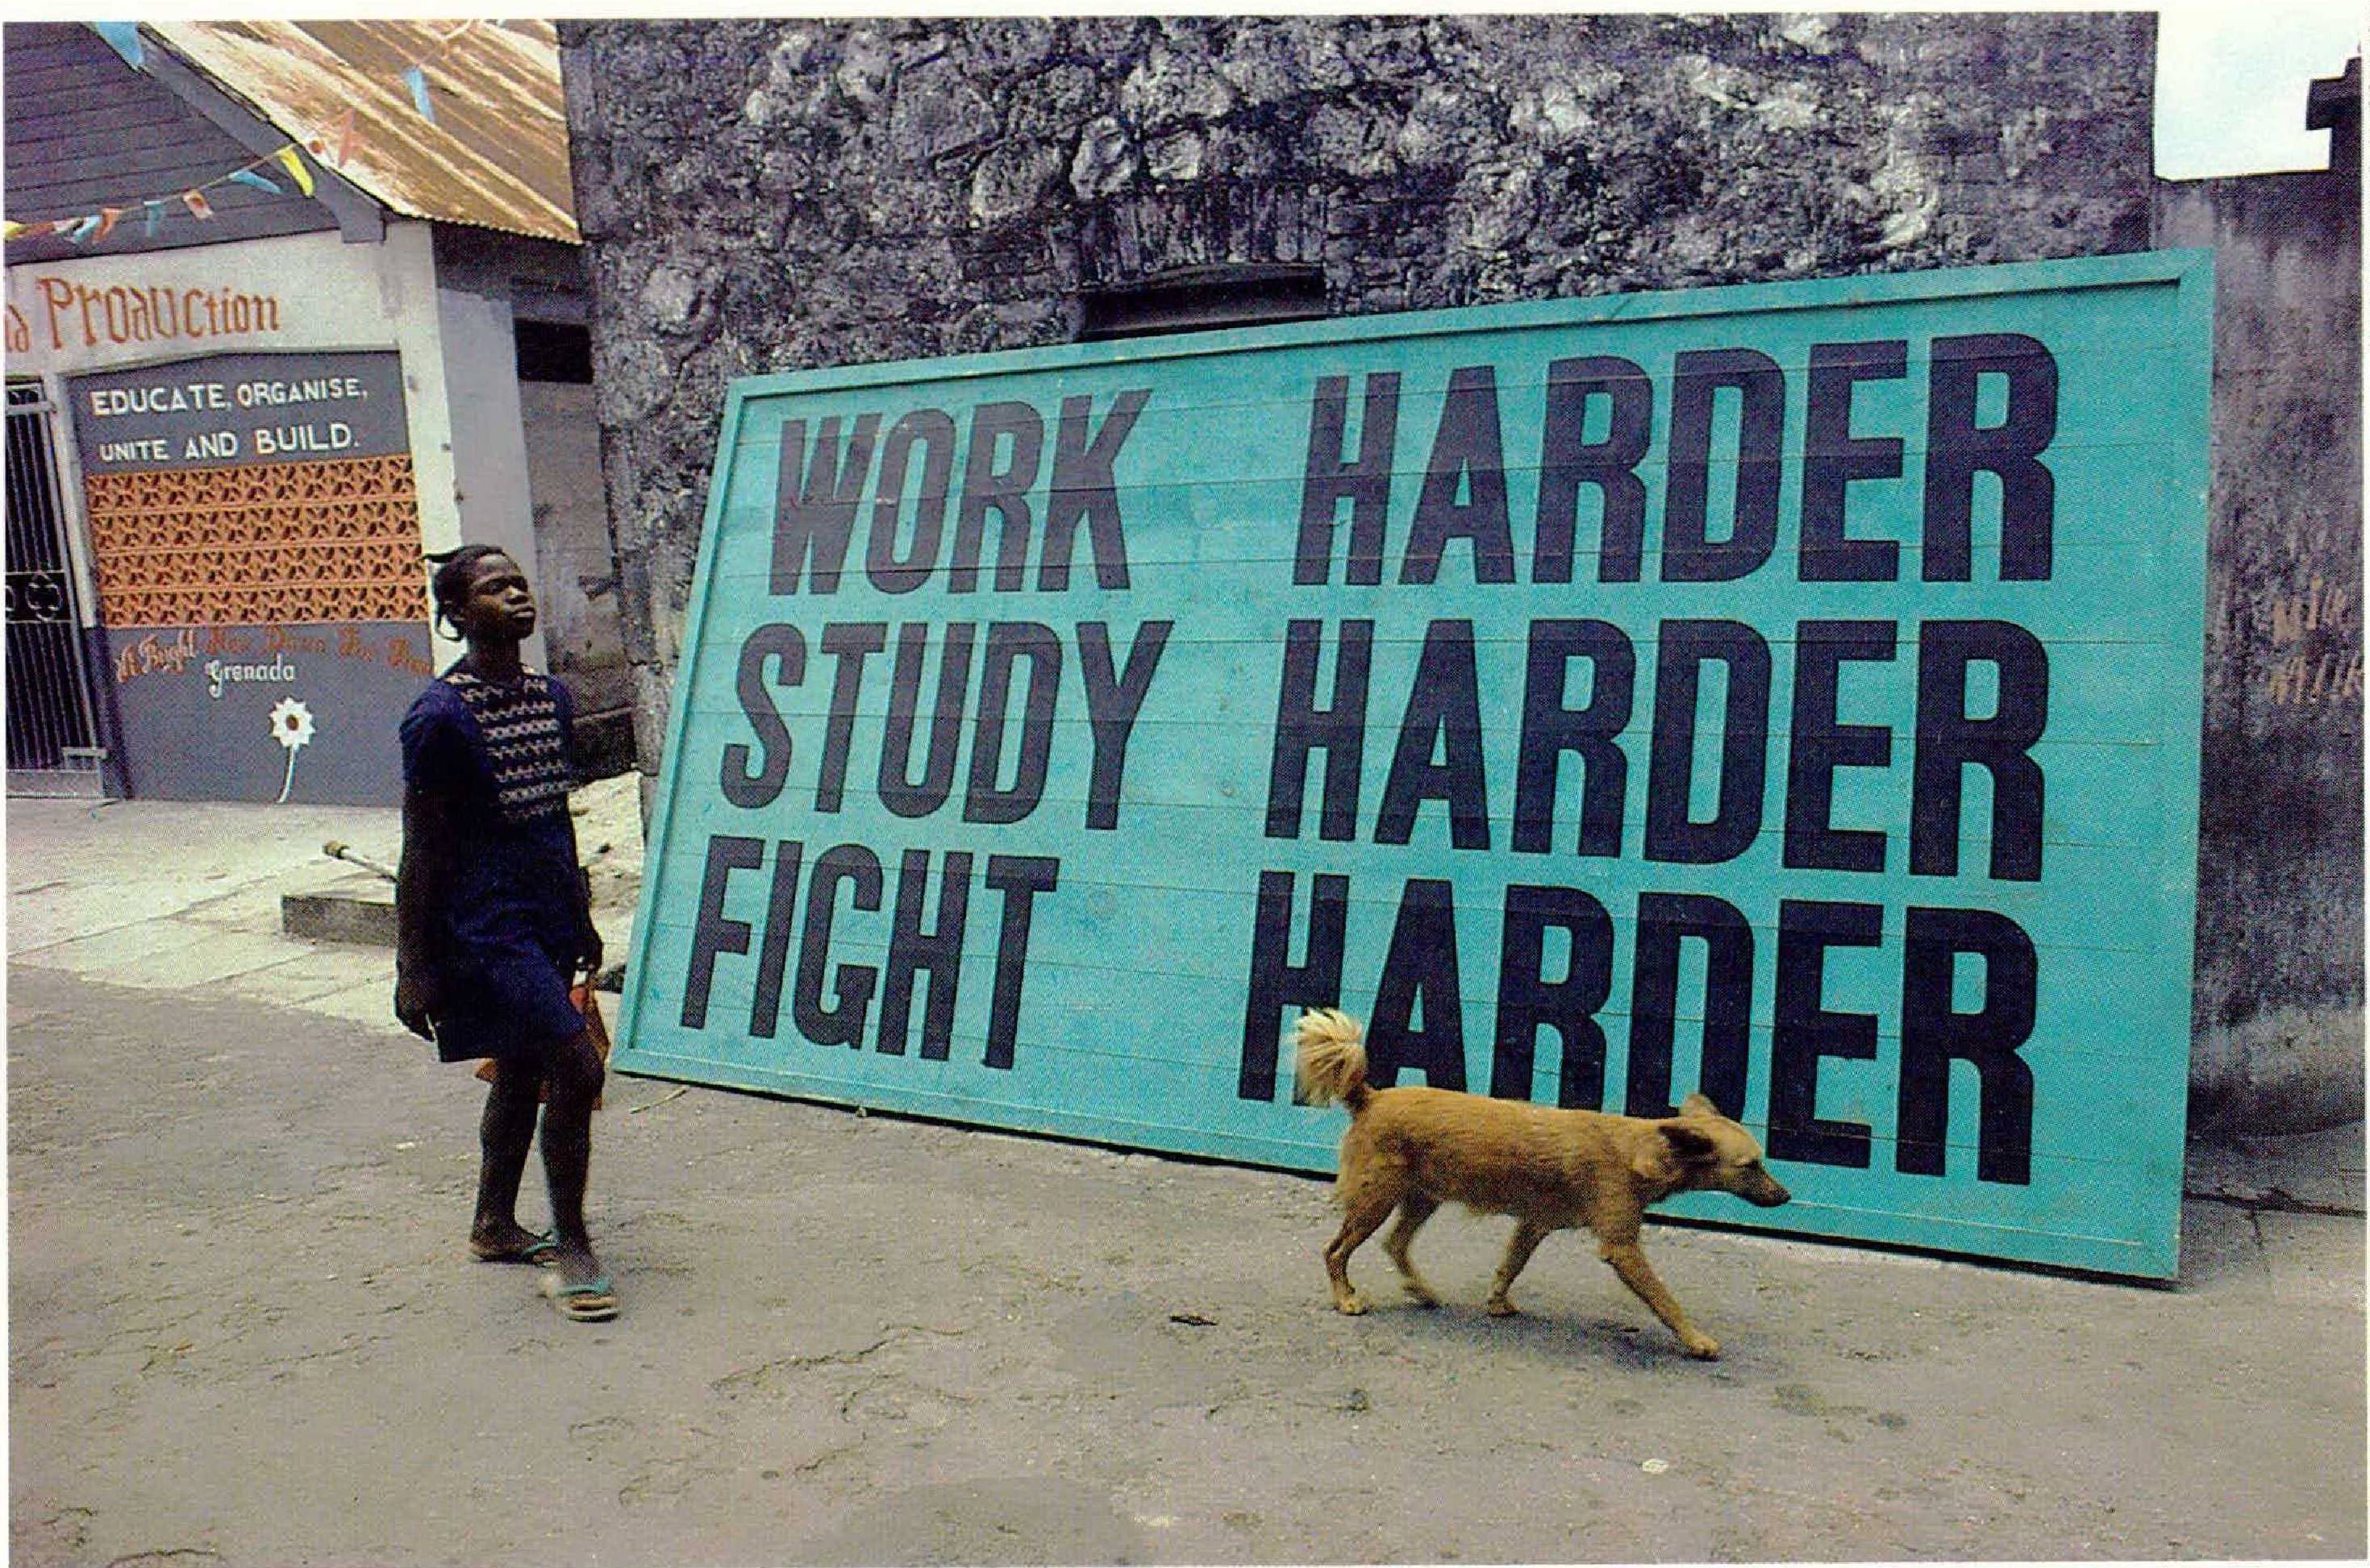 Production
EDUCATE, ORGANISE,
UNITE AND BUILD.
Grenada
WORK HARDER
STUDY HARDER
FIGHT HARDER